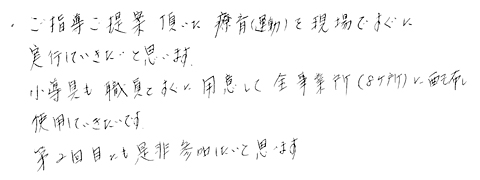 ・ご指導ご提案頂いた 療育(運動)を現場ですぐに
実行していきたいと思います。
小道具も職員とすぐに用意して全事業所(8ヶ所)に配布し
使用していきたいです。
第2回目にも是非参加したいと思います